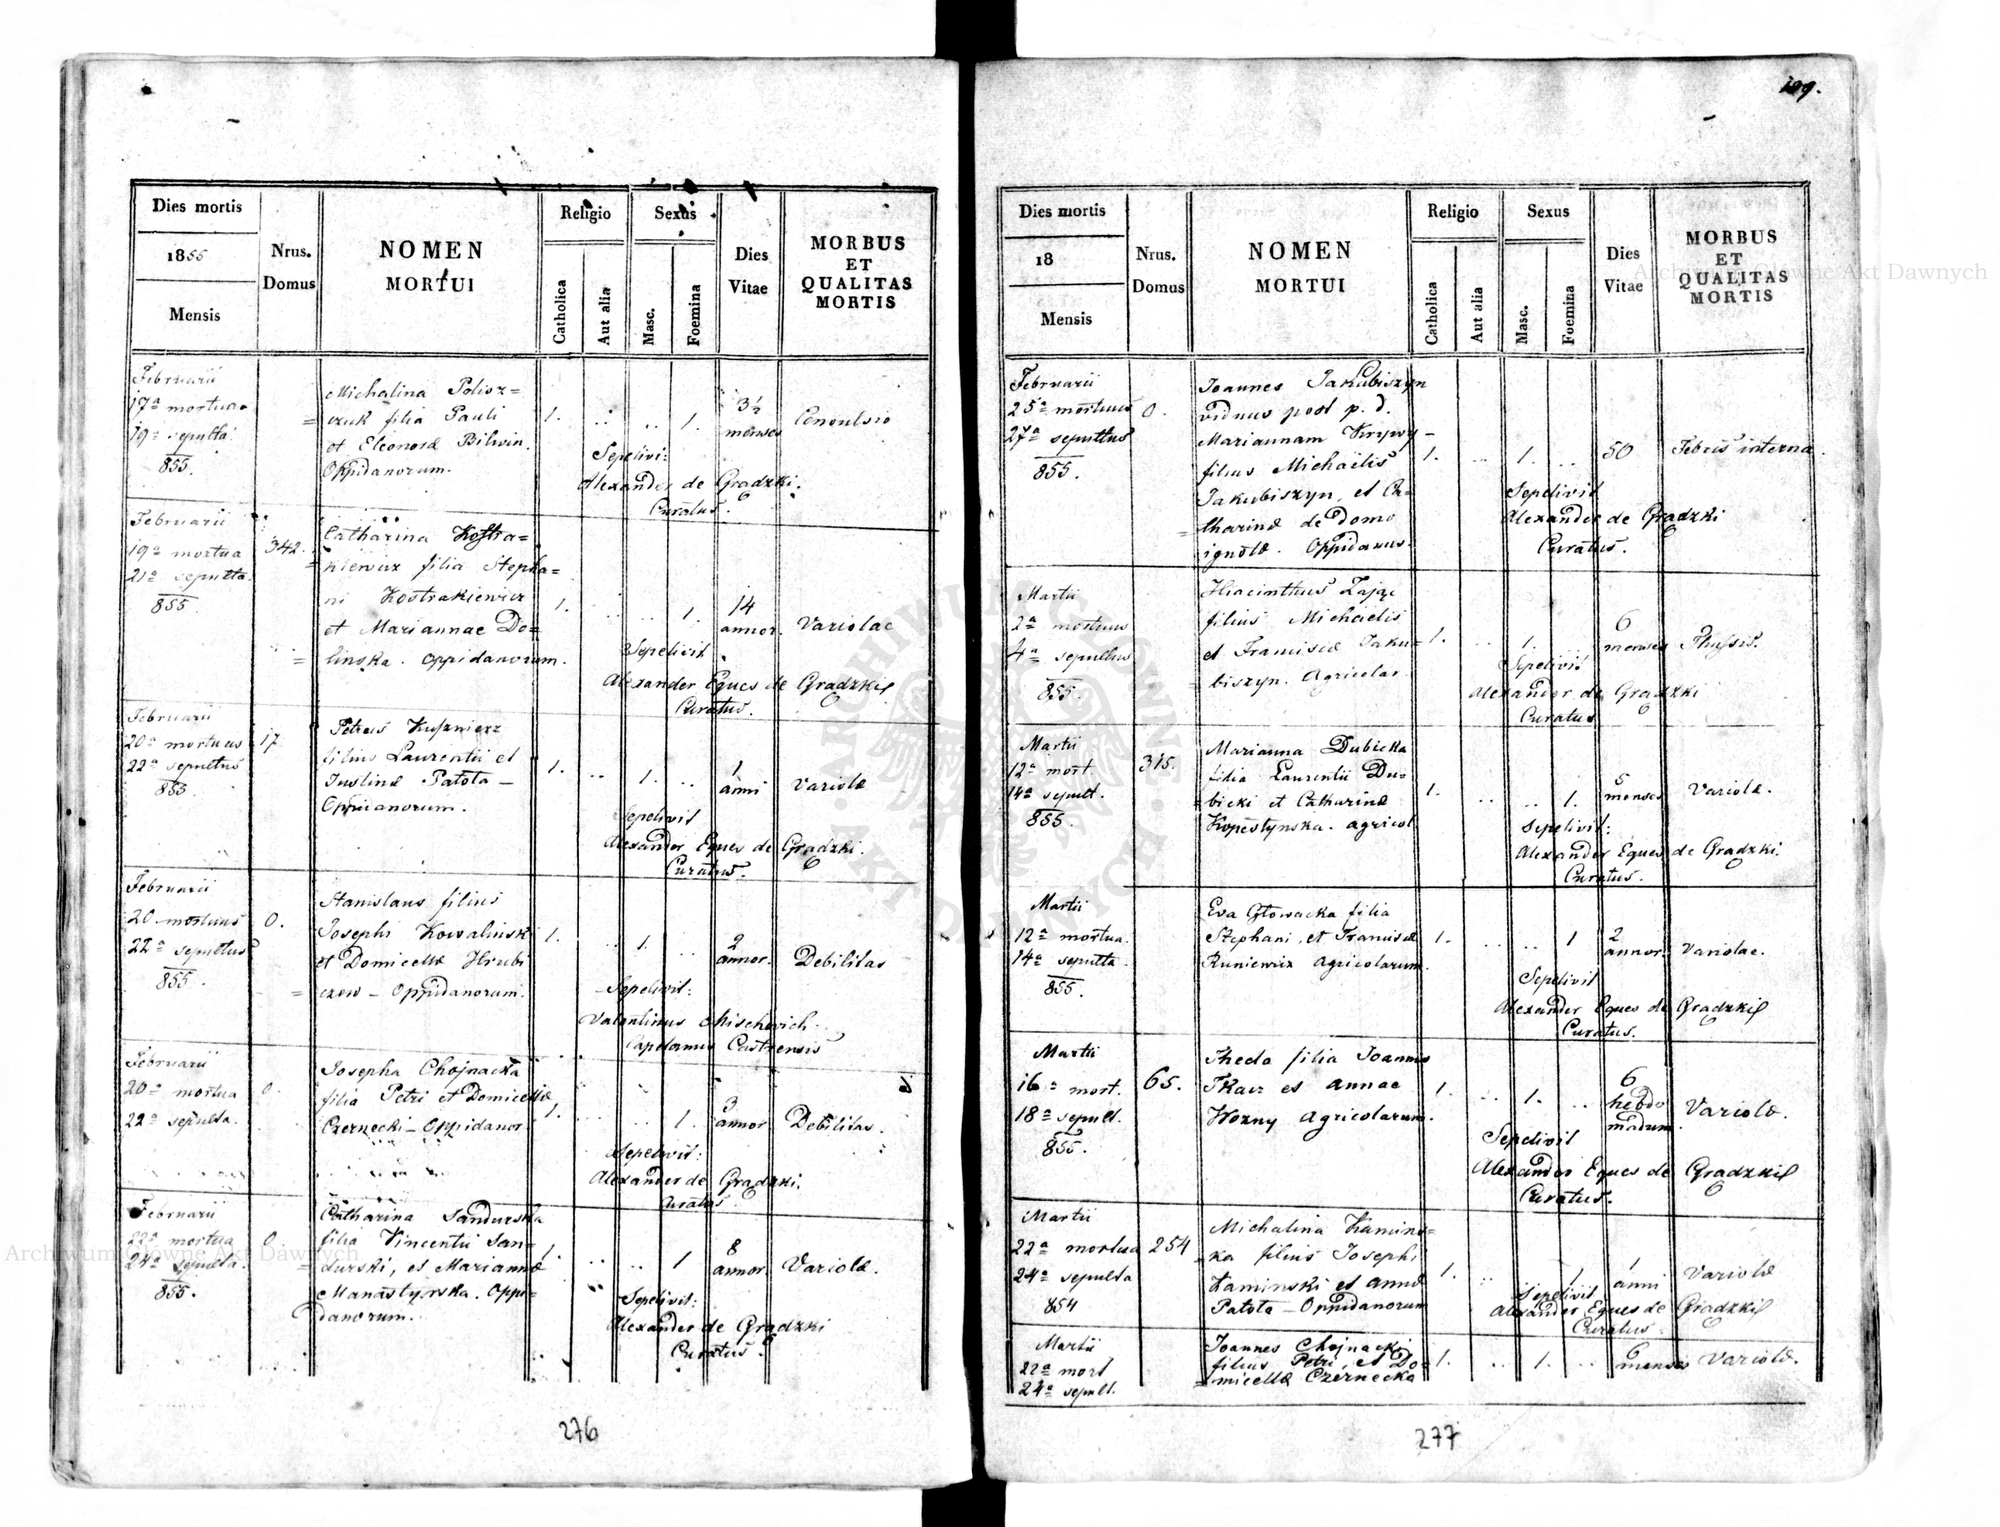 Dies mortis
1855
Mensis
Nrus.
Domus
NOMEN
MORTUI
Religio
Catholica
Aut alia
Sexus
Masc.
Foemina
Dies
Vitae
MORBUS
ET
QUALITAS
MORTIS
Februarii
17a mortua
19a sepulta
855.
Michalina Polisz=
czuk filia Pauli
et Eleonora Biliwin.
Oppidanorum.
1.
1.
3½
menses
Convulsio
Sepelivi:
Alexander de Gradzki.
Curatus.
Februarii
19a mortua
21a sepulta
855.
342.
Catharina Kostra=
kiewicz filia Stepha=
ni Kostrakiewicz
et Mariannae Do=
linska. Oppidanorum.
1.
1.
14
annor.
Variolae
Sepelivit
Alexander Eques de Gradzki
Curatus.
Februarii
20a mortuus
22a sepultus
855.
17
Petrus Kusznierz
filius Laurentii et
Justinae Patota –
Oppidanorum.
1.
1.
1
anni
Variolae
Sepelivit
Alexander Eques de Gradzki.
Curatus.
Februarii
20 mortuus
22a sepultus
855.
0.
Stanislaus filius
Josephi Kowalinski
et Domicellae Hrubi
czow – Oppidanorum.
1.
1.
2
annor.
Debilitas
Sepelivit:
Valentinus
Capelanus Castrensis
Februarii
20a mortua
22a sepulta.
0.
Josepha Chojnacka
filia Petri et Domicellae
Czernecki – Oppidanor
1.
1.
3
annor
Debilitas.
Sepelivit:
Alexander de Gradzki.
Curatus.
Februarii
22a mortua
24a sepulta.
855.
0.
Catharina Sandurska
filia Vincentii San=
durski, et Mariannae
Manastyrska. Oppi=
danorum.
1.
1
8
annor.
Variolae.
Sepelivit:
Alexander de Gradzki
Curatus.
276
199.
Dies mortis
18
Mensis
Nrus.
Domus
NOMEN
MORTUI
Religio
Catholica
Aut alia
Sexus
Masc.
Foemina
Dies
Vitae
MORBUS
ET
QUALITAS
MORTIS
Februarii
25a mortuus
27a sepultus
855.
0.
Joannes Jakubiszyn
viduus post p. d.
Mariannam Krywy –
filius Michaelis
Jakubiszyn, et Ca=
tharinae de domo
ignotae. Oppidanus.
1.
1.
50
Febris interna.
Sepelivit
Alexander de Gradzki
Curatus.
Martii
2a mortuus
4a sepultus
855.
Hiacinthus Zając
filius Michaelis
et Franciscae Jaku=
biszyn. Agricolar.
1.
1.
6
menses
Thyssis.
Sepelivit
Alexander de Gradzki
Curatus
Martii
12a mort.
14a sepult.
855.
315.
Marianna Dubicka
filia Laurentii Du=
bicki et Catharinae
Kopestynska. agricol
1.
1.
5
menses
Variolae.
Sepelivit:
Alexander Eques de Gradzki.
Curatus.
Martii
12a mortua.
14a sepulta.
855.
Eva Głowacka filia
Stephani, et Franciscae
Runiewicz agricolarum.
1.
1
2
annor.
Variolae.
Sepelivit
Alexander Eques de Gradzki
Curatus.
Martii
16a mort.
18a sepult.
855.
65.
Theda filia Joannis
Tkacz et Annae
Wozny Agricolarum.
1.
1.
6
hebdo
madum
Variolae.
Sepelivit
Alexander Eques de Gradzki
Curatus.
Martii
22a mortua
24a sepulta
854
254
Michalina Kamins=
ka filius Josephi
Kaminski et Annae
Patota – Oppidanorum
1.
1
1
anni
Variolae
Sepelivit
Alexander Eques de Gradzki
Curatus.
Martii
22a mort
24a sepult.
Joannes Chojnacki
filius Petri, et Do=
micellae Czernecka
1.
1.
6
mensis
Variolae.
277
Archiwum Główne Akt Dawnych
Archiwum Główne Akt Dawnych
ARCHIWUM GŁÓWNE AKT DAWNYCH